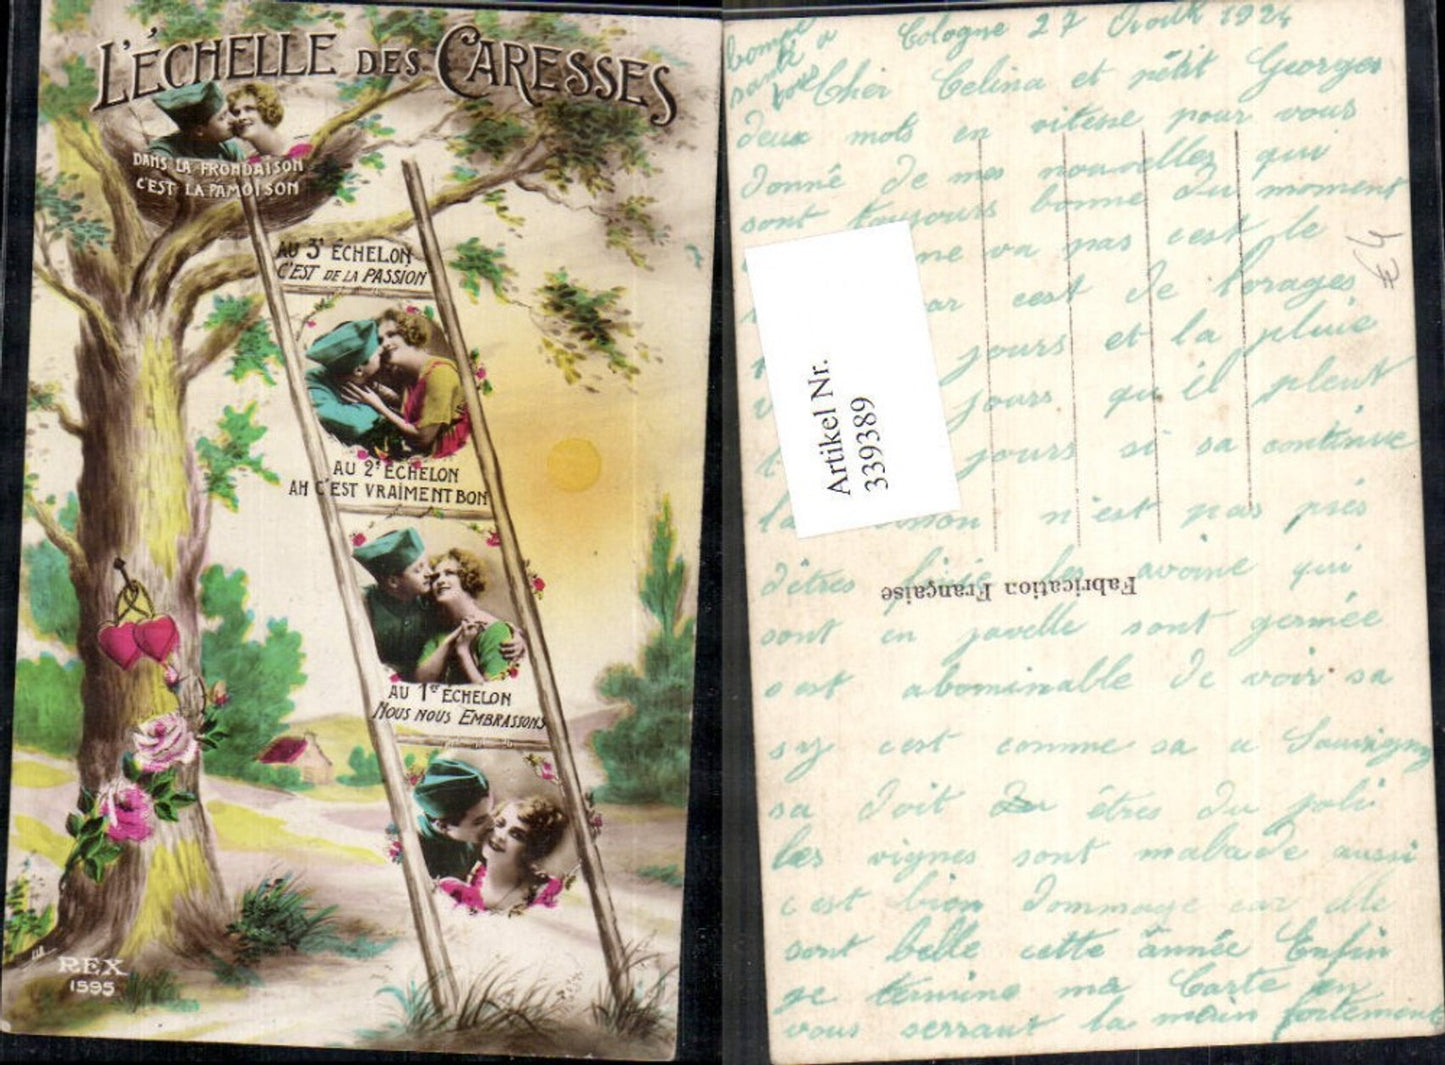 L'ÉCHELLE DES CARESSES
DANS LA FRONDAISON
C'EST LA PAMOISON
AU 3e ÉCHELON
C'EST DE LA PASSION
AU 2e ÉCHELON
AH C'EST VRAIMENT BON
AU 1er ÉCHELON
NOUS NOUS EMBRASSONS
REX
1595
bonne
santé a
tous
Cologne 27 Aoutt 1924
Cher Celina et petit Georges
deux mots en vitesse pour vous
donné de mes nouvelles qui
sont toujours bonne du moment
ne va pas cest le
car cest de lorages
jours et la pluie
jours qu il pleut
jours si sa continue
la n'est pas près
d'êtres les avoine qui
sont en javelle sont germée
c est abominable de voir sa
sy cest comme sa a Souvigny
sa doit êtres du joli
les vignes sont malade aussi
c est bien dommage car elle
sont belle cette année Enfin
je termine ma Carte en
vous serrant la main fortement
Artikel Nr.
339389
Fabrication Française
€4